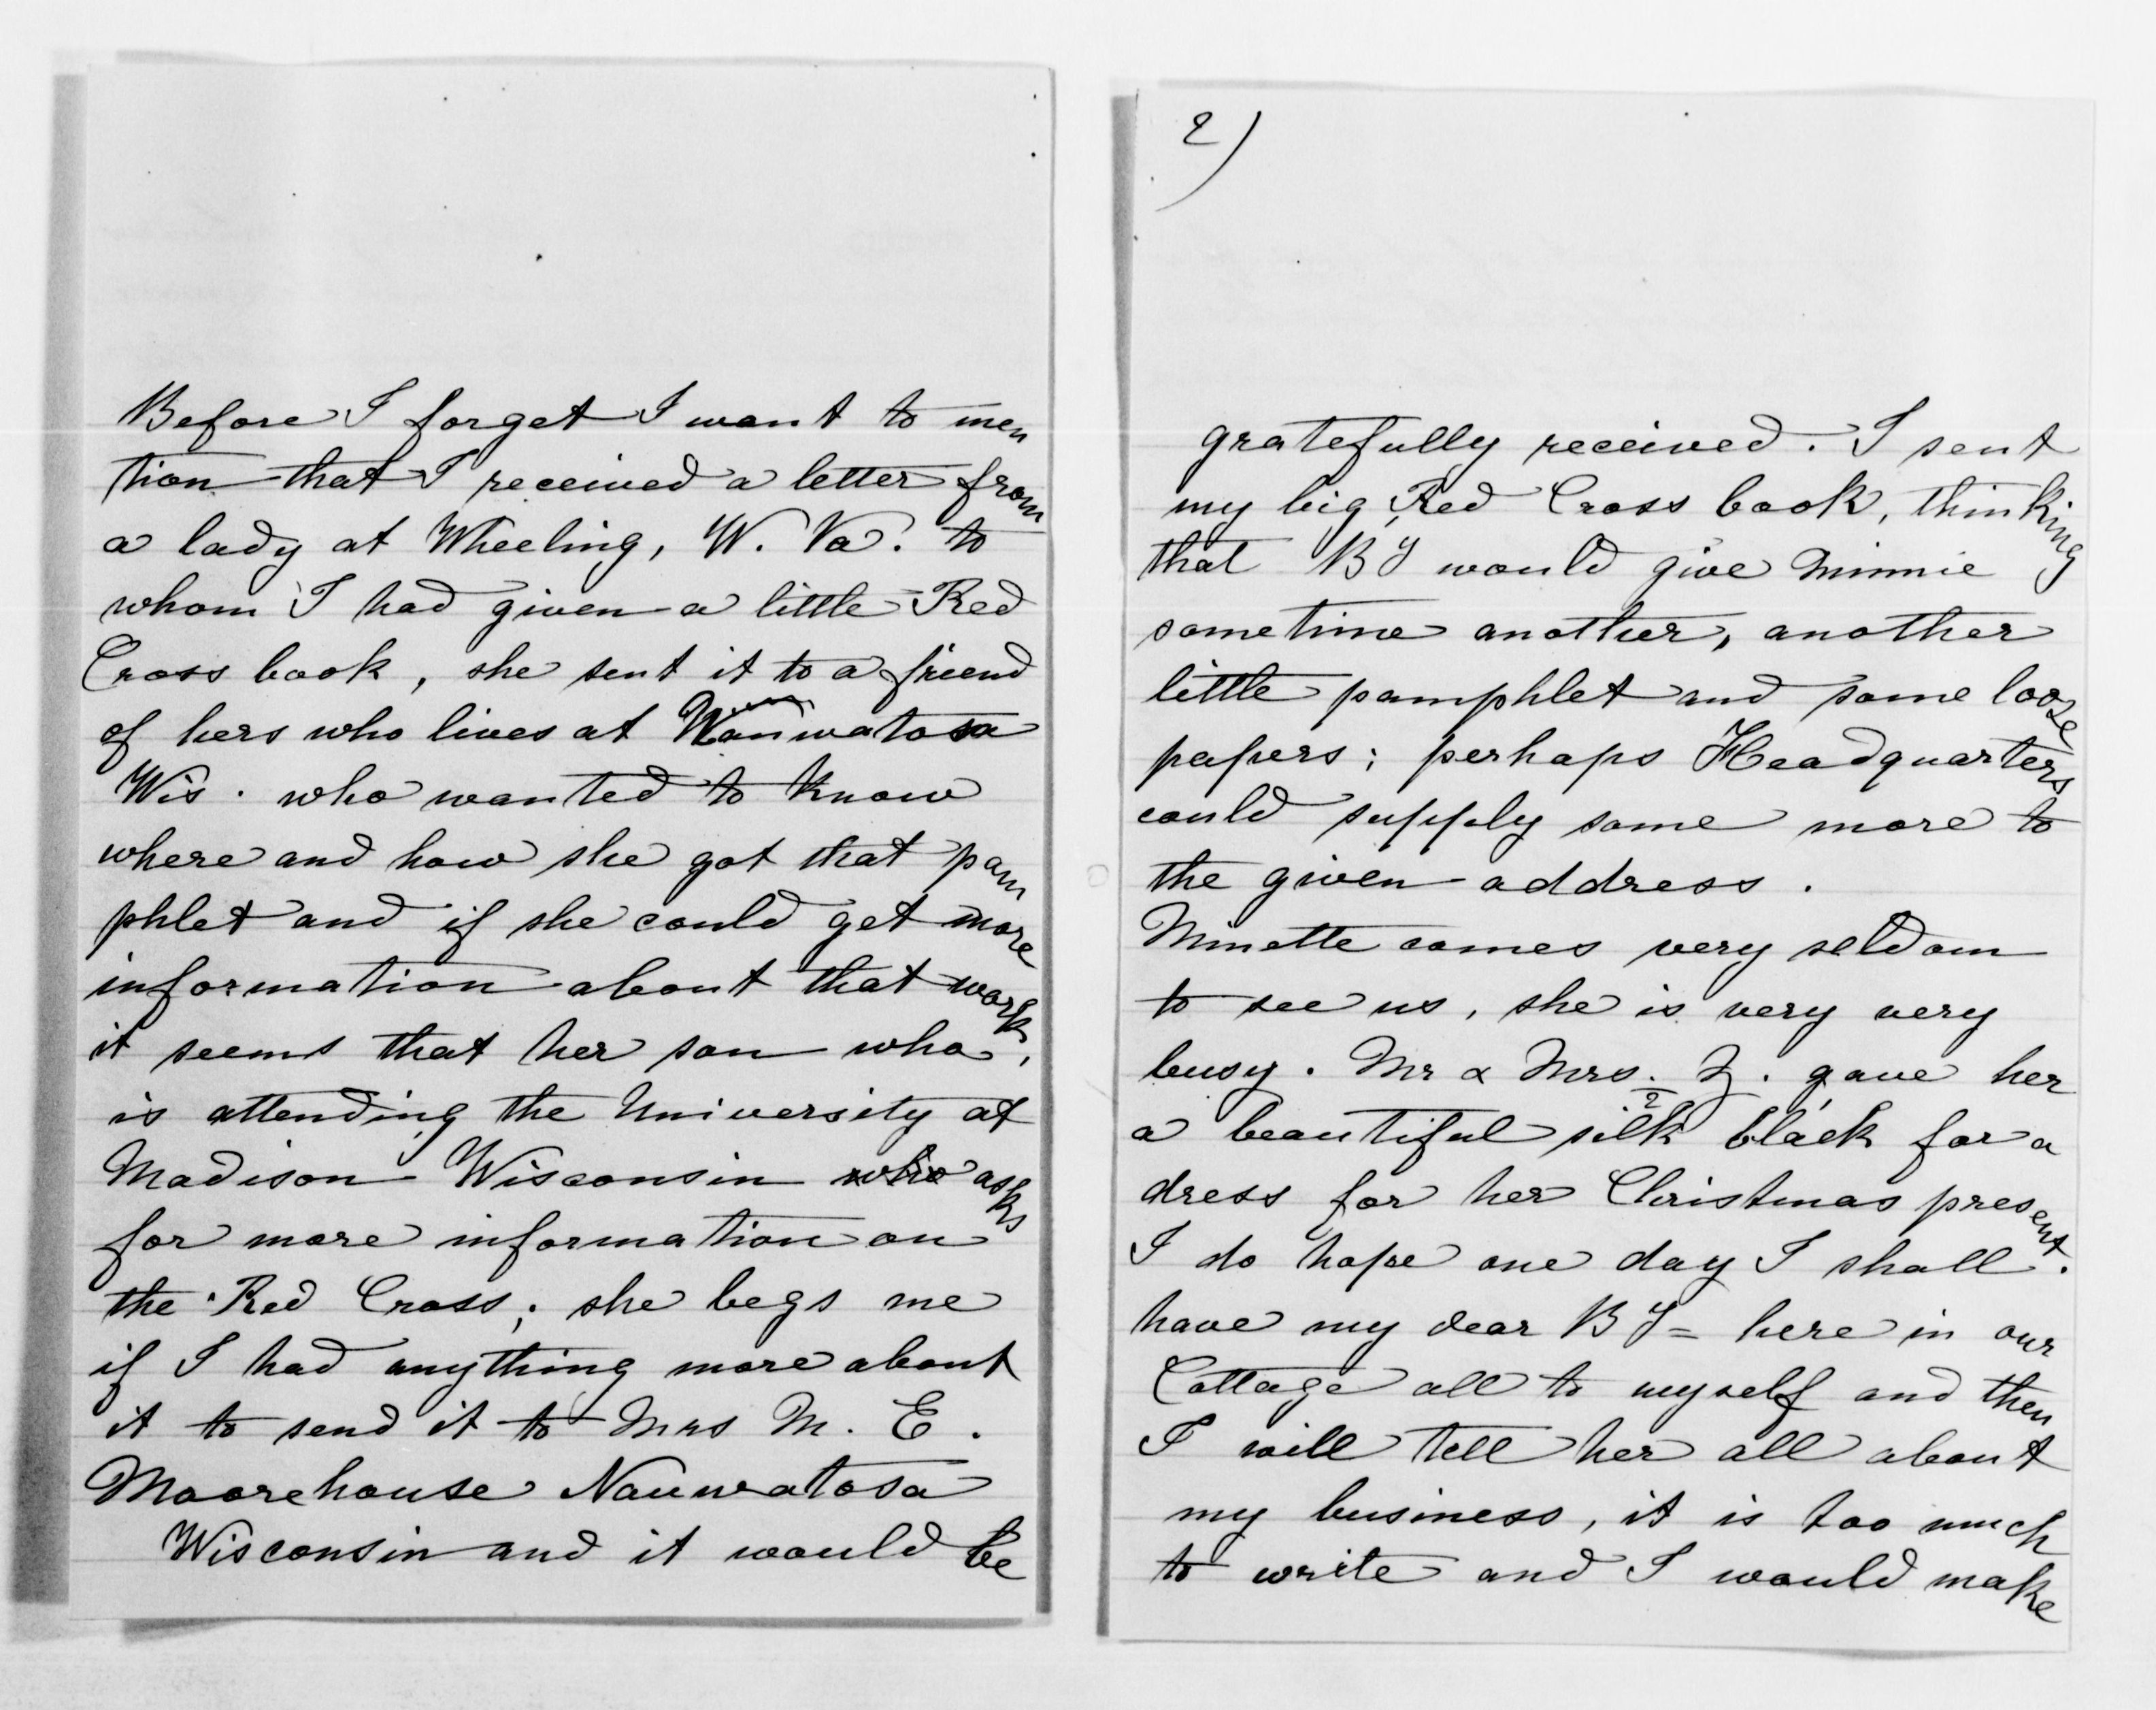 Before I forget I want to men
tion that I received a letter from
a lady at Wheeling, W. Va. to
whom I had given a little Red
Cross book, she sent it to a friend
of hers who lives at Nauwatosa
Wis. who wanted to know
where and how she got that pam
phlet and if she could get more
information about that work,
it seems that her son who
is attending the University at
Madison Wisconsin who asks
for more information on
the Red Cross; she begs me
if I had anything more about
it to send it to Mrs M. E.
Moorehouse Nauwatosa
Wisconsin and it would be
2)
gratefully received. I sent
my big Red Cross book, thinking
that BY would give Minnie
sometime another, another
little pamphlet and some loose
papers; perhaps Headquarters
could supply some more to
the given address.
Minette comes very seldom
to see us, she is very very
busy. Mr & Mrs. Z. gave her
a beautiful silk black for a
dress for her Christmas present.
I do hope one day I shall
have my dear BY = here in our
Cottage all to myself and then
I will tell her all about
my business, it is too much
to write and I would make